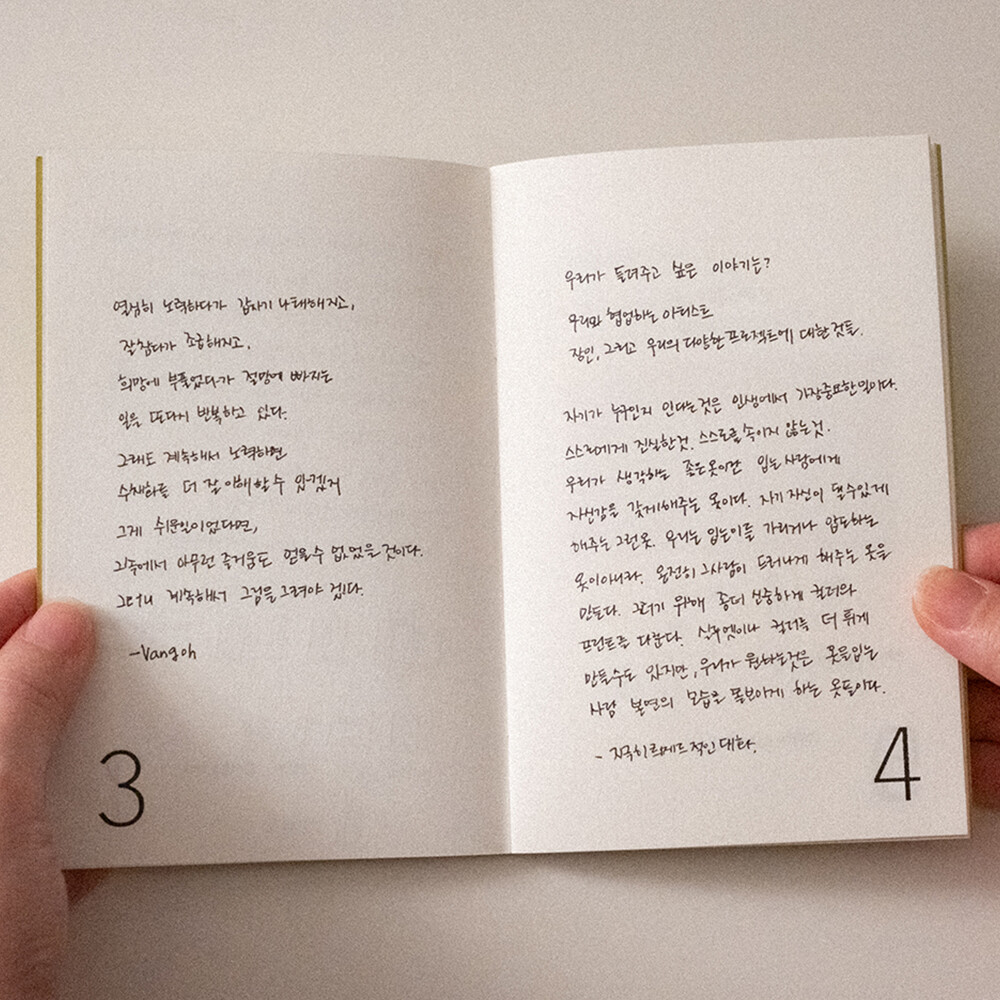 열심히 노력하다가 갑자기 나태해지고,
잘참다가 조급해지고,
희망에 부풀었다가 절망에 빠지는
일을 또다시 반복하고 있다.
그래도 계속해서 노력하면
수채화를 더 잘 이해할 수 있겠지
그게 쉬운일이었다면,
그속에서 아무런 즐거움도 얻을수 없었을 것이다.
그러니 계속해서 그림을 그려야 겠다.
-Vangoh
3
우리가 들려주고 싶은 이야기는?
우리와 협업하는 아티스트
장인, 그리고 우리의 다양한 프로젝트에 대한 것들.
자기가 누구인지 안다는것은 인생에서 가장중요한일이다.
스스로에게 진실한것. 스스로를 속이지 않는것.
우리가 생각하는 좋은옷이란 입는 사람에게
자신감을 갖게해주는 옷이다. 자기 자신이 될수있게
해주는 그런옷. 우리는 입는이를 가리거나 압도하는
옷이아니라. 온전히 그사람이 드러나게 해주는 옷을
만든다. 그러기 위해 좀더 신중하게 컬러와
프린트를 다룬다. 실루엣이나 컬러를 더 튀게
만들수도 있지만, 우리가 원하는것은 옷을입는
사람 본연의 모습을 돋보이게 하는 옷들이다.
- 지극히 르메르 적인 대화.
4